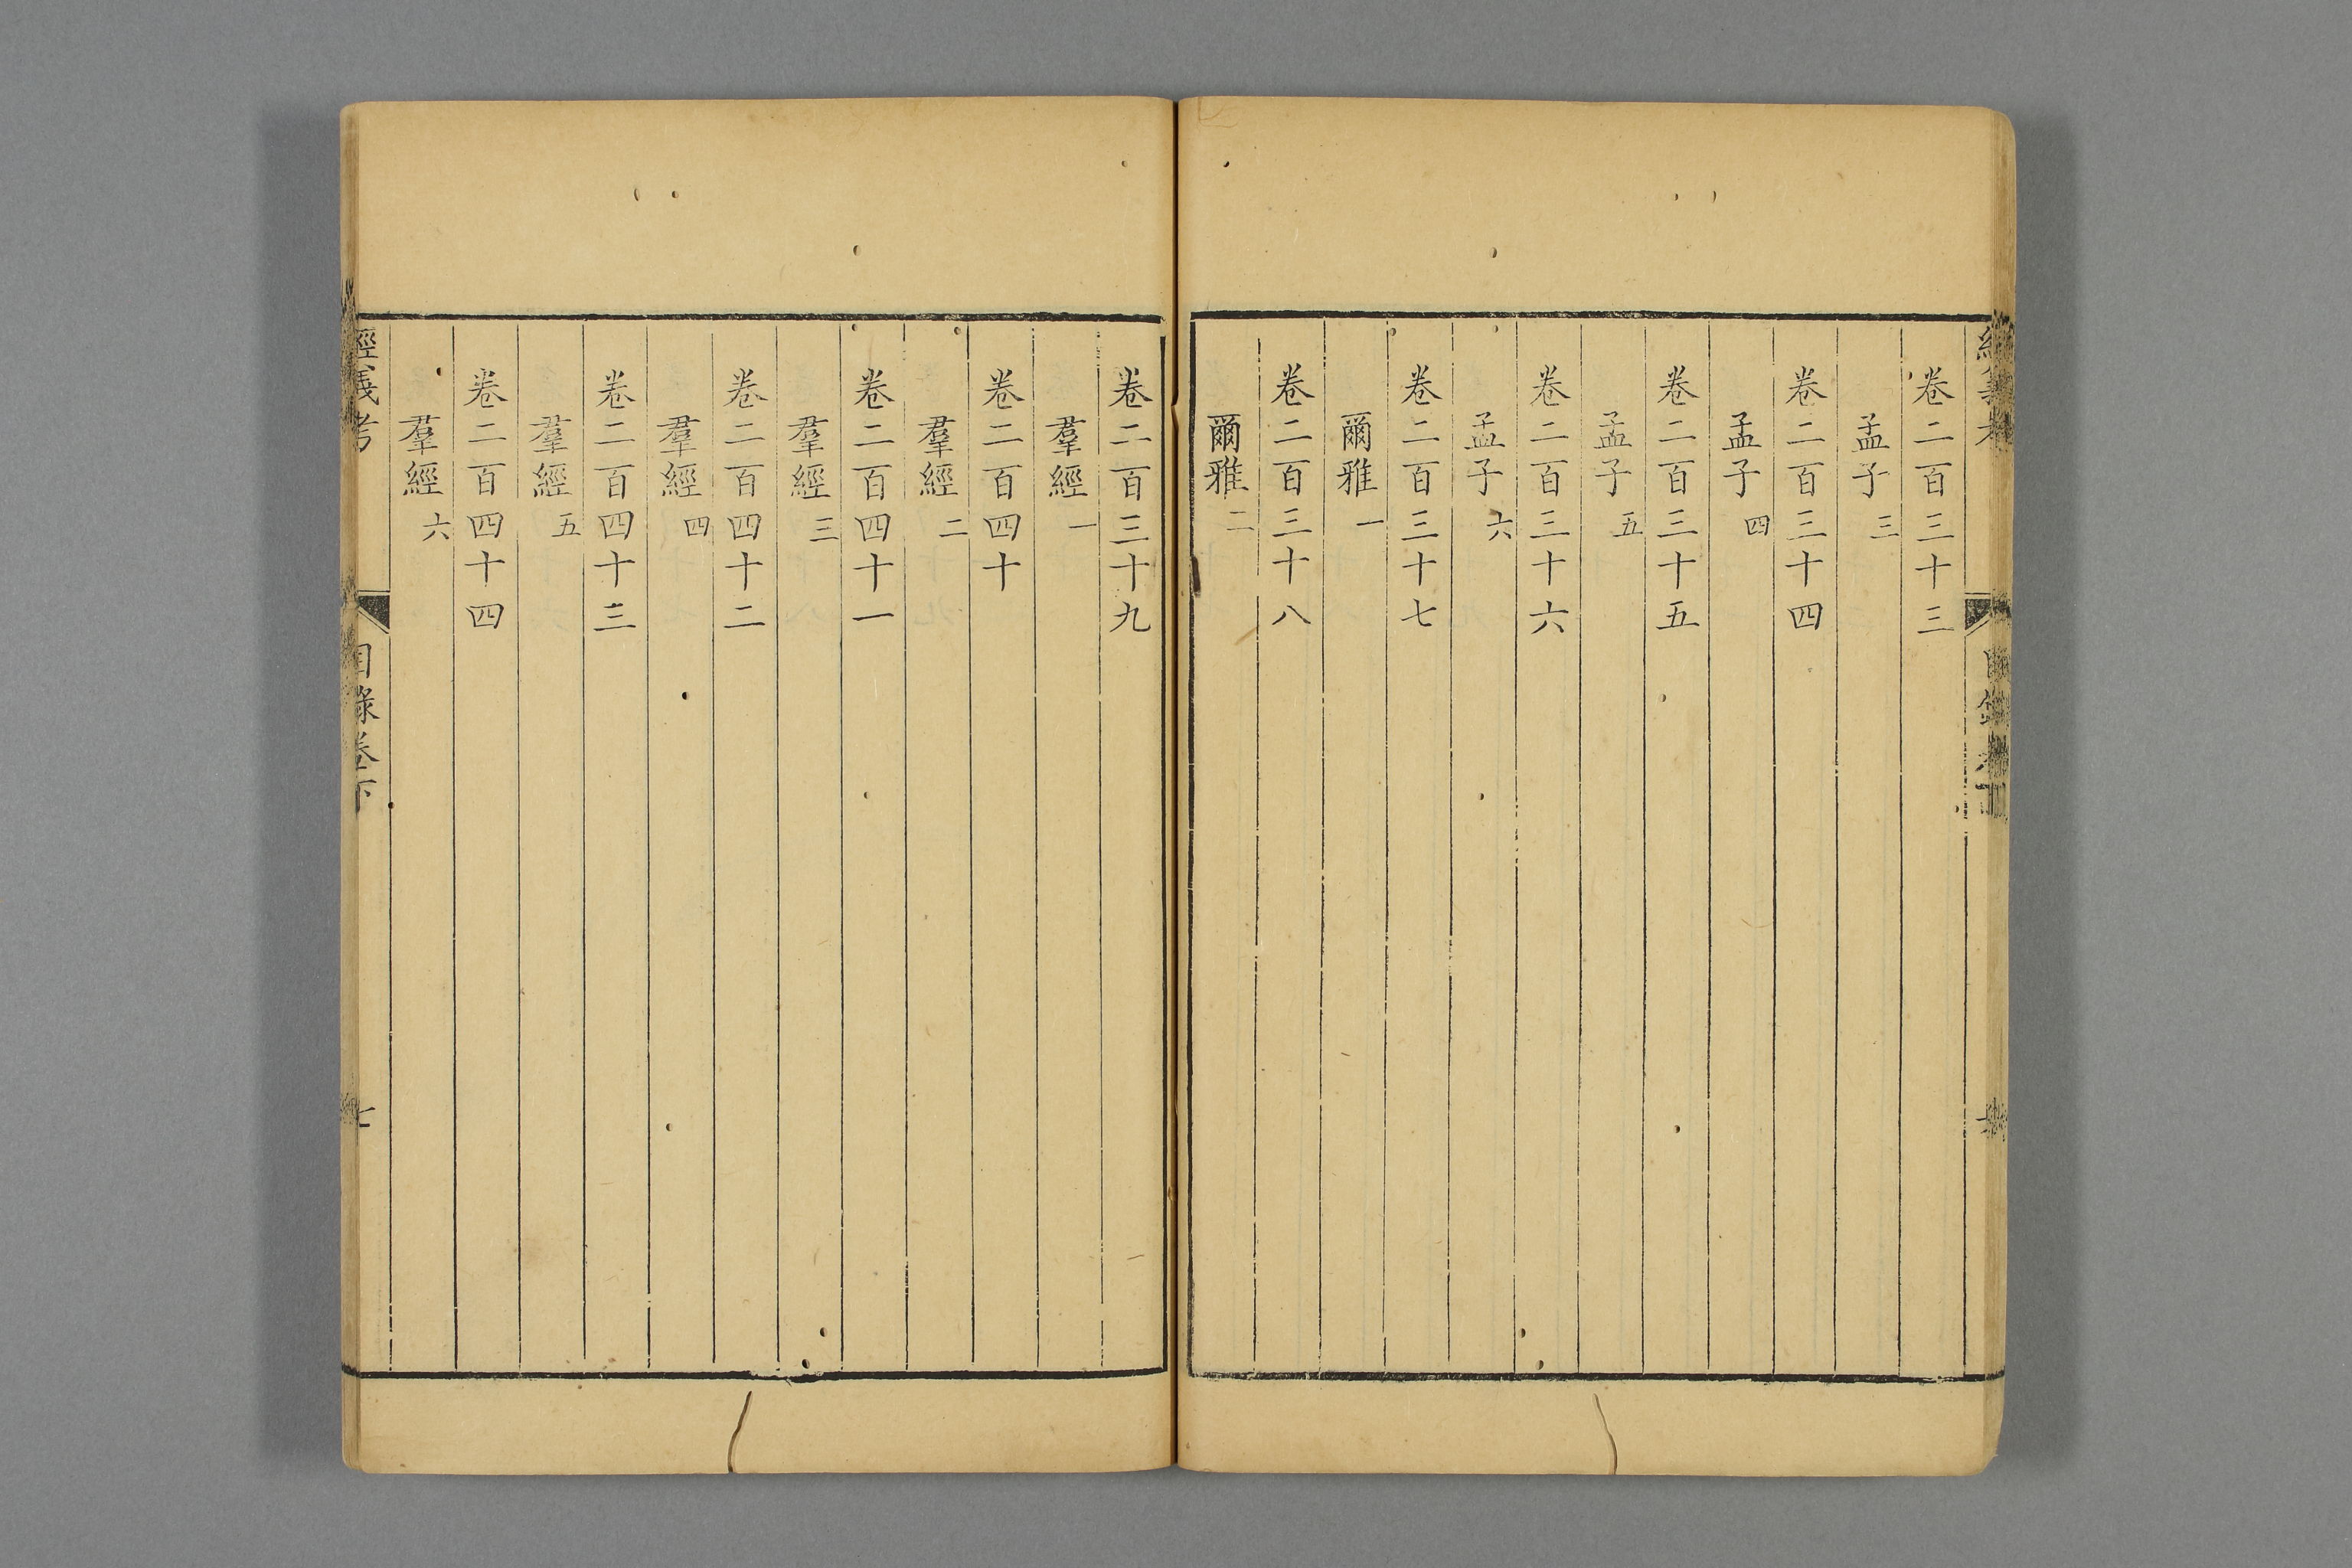 卷二百三十三
孟子三
卷二百三十四
孟子四
卷二百三十五
孟子五
卷二百三十六
孟子六
卷二百三十七
爾雅一
卷二百三十八
爾雅二
卷二百三十九
羣經一
卷二百四十
羣經二
卷二百四十一
羣經三
卷二百四十二
羣經四
卷二百四十三
羣經五
卷二百四十四
羣經六
經義考
目錄卷下
七